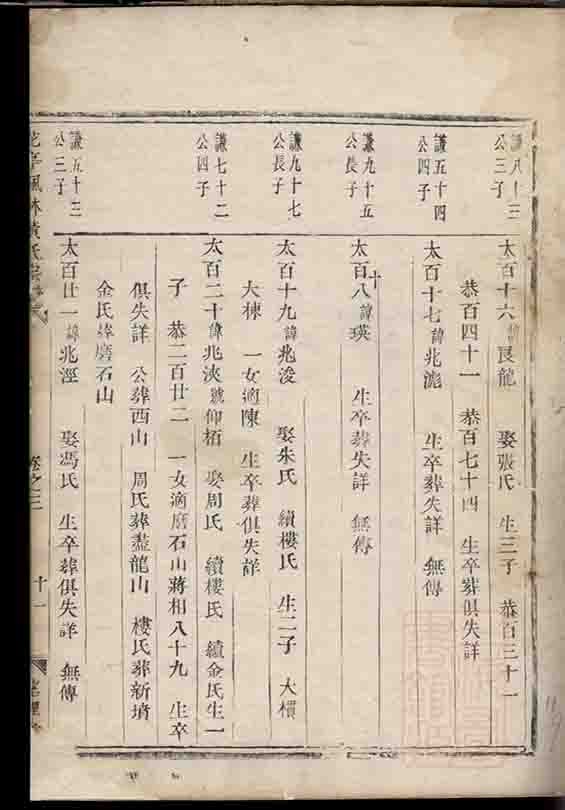 謙八十三
公三子
太百十六諱良龍 娶張氏 生三子 恭百三十一
恭百四十一 恭百七十四 生卒葬俱失詳
謙五十四
公四子
太百十七諱兆 生卒葬失詳 無傳
謙九十五
公長子
太百十八諱瑛 生卒葬失詳 無傳
謙九十七
公長子
太百十九諱兆浚 娶朱氏 續樓氏 生二子 大横
大棟 一女適陳 生卒葬俱失詳
謙七十二
公四子
太百二十諱兆浹號仰栢 娶周氏 續樓氏 續金氏生一
子 恭二百廿二 一女適磨石山蔣相八十九 生卒
俱失詳 公葬西山 周氏葬盡龍山 樓氏葬新墳
金氏葬磨石山
謙五十三
公三子
太百廿一諱兆涇 娶馮氏 生卒葬俱失詳 無傳
亭風林黃氏宗 卷之三 十一